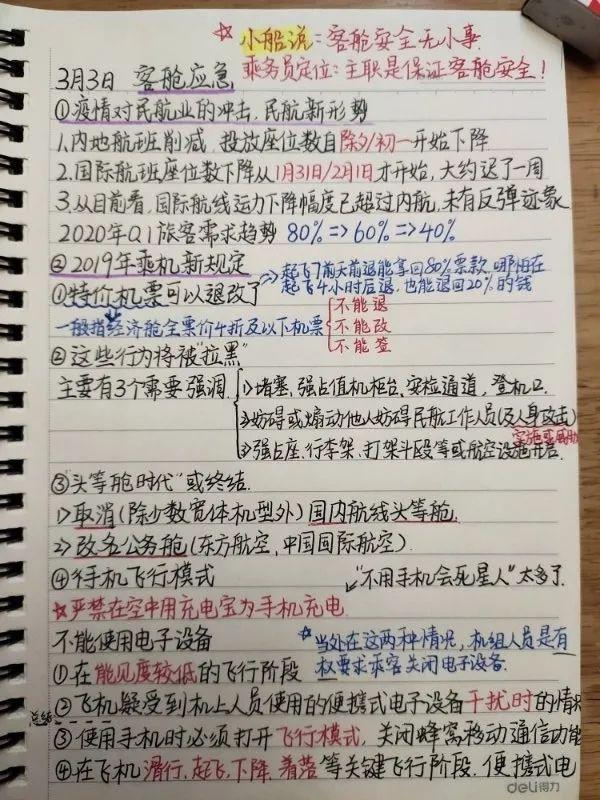 ☆小船说:客舱安全无小事.
乘务员定位:主职是保证客舱安全!
3月3日 客舱应急
①疫情对民航业的冲击,民航新形势
1.内地航班削减,投放座位数自除夕/初一开始下降
2.国际航班座位数下降从1月31日/2月1日才开始,大约迟了一周
3.从目前看,国际航线运力下降幅度已超过内航,未有反弹迹象
2020年Q1旅客需求趋势 80%=>60%=>40%
②2019年乘机新规定
起飞7前天前退能拿回80%票款,哪怕在
起飞4小时后退,也能退回20%的钱
①特价机票可以退改了
一般指经济舱全票价4折及以下机票
不能退
不能改
不能签
②这些行为将被"拉黑"
主要有3个需要强调
1>堵塞,强占值机柜台,安检通道,登机口
2>妨碍或煽动他人妨碍民航工作人员(及人身攻击)
实施或威胁
3>强占座、行李架、打架斗殴等或航空设施开启
③"头等舱时代"或终结
1>取消(除少数宽体机型外)国内航线头等舱
2>改名公务舱(东方航空,中国国际航空)
④手机飞行模式
"不用手机会死星人"太多了
★严禁在空中用充电宝为手机充电
不能使用电子设备
*当处在这两种情况,机组人员是有
权要求乘客关闭电子设备
①在能见度较低的飞行阶段
②飞机疑受到机上人员使用的便携式电子设备干扰时的情
总结
③使用手机时必须打开飞行模式,关闭蜂窝移动通信功能
④在飞机滑行、起飞、下降、着落等关键飞行阶段,便携式电
deli得力